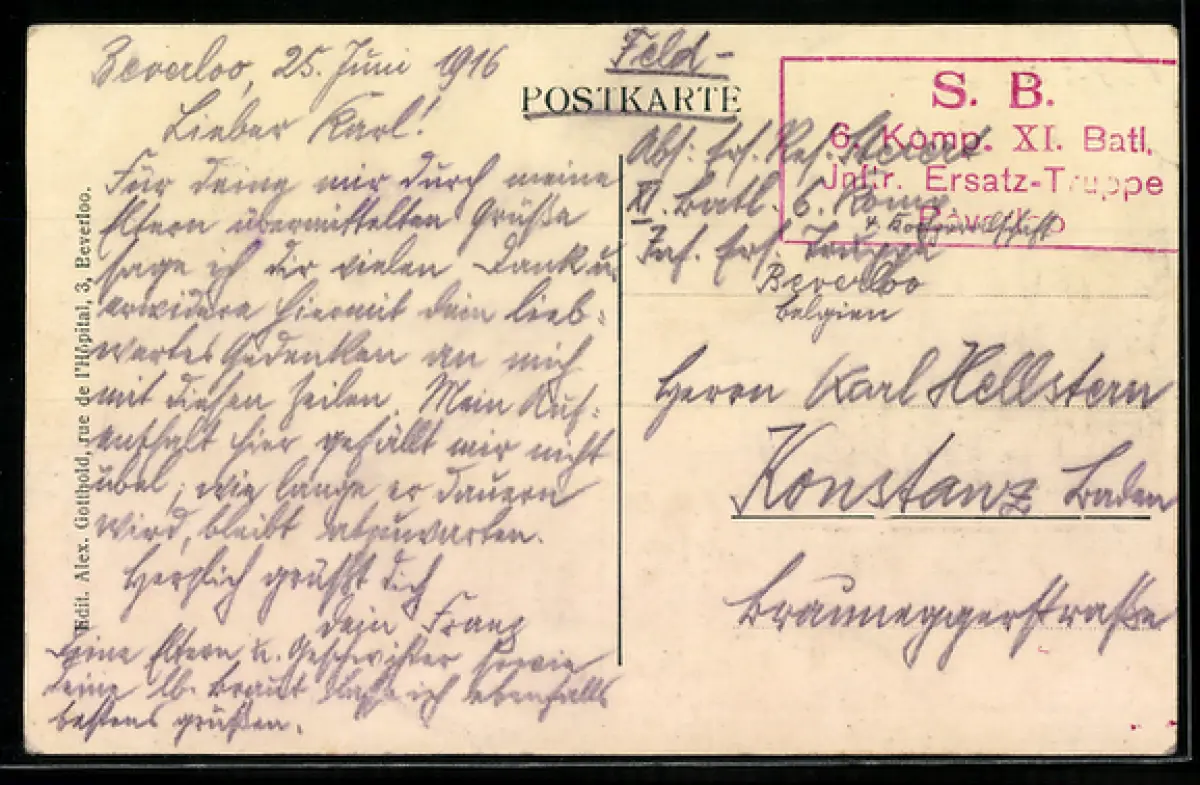 Beverloo, 25. Juni 1916
Lieber Karl!
Für deine mir durch meine
Eltern übermittelten Grüße
sage ich dir vielen Dank u.
erwidere hiermit dein lieb-
wertes Gedenken an mich
mit diesen Zeilen. Mein Auf-
enthalt hier gefällt mir nicht
übel; wie lange er dauern
wird, bleibt abzuwarten.
Herzlich grüßt dich
dein Franz
Deine Eltern u. Geschwister sowie
deine lb. Braut lasse ich ebenfalls
bestens grüßen.
Edit. Alex. Gotthold, rue de l'Hôpital, 3, Beverloo.
Feld-
POSTKARTE
S. B.
6. Komp. XI. Batl.
Inftr. Ersatz-Truppe
Beverloo
Abs: Ers. Res.
XI. Batl. 6. Komp
Inf. Ers. Truppe
Beverloo
Belgien
Herrn Karl Hellstern
Konstanz Baden
Brauneggerstraße